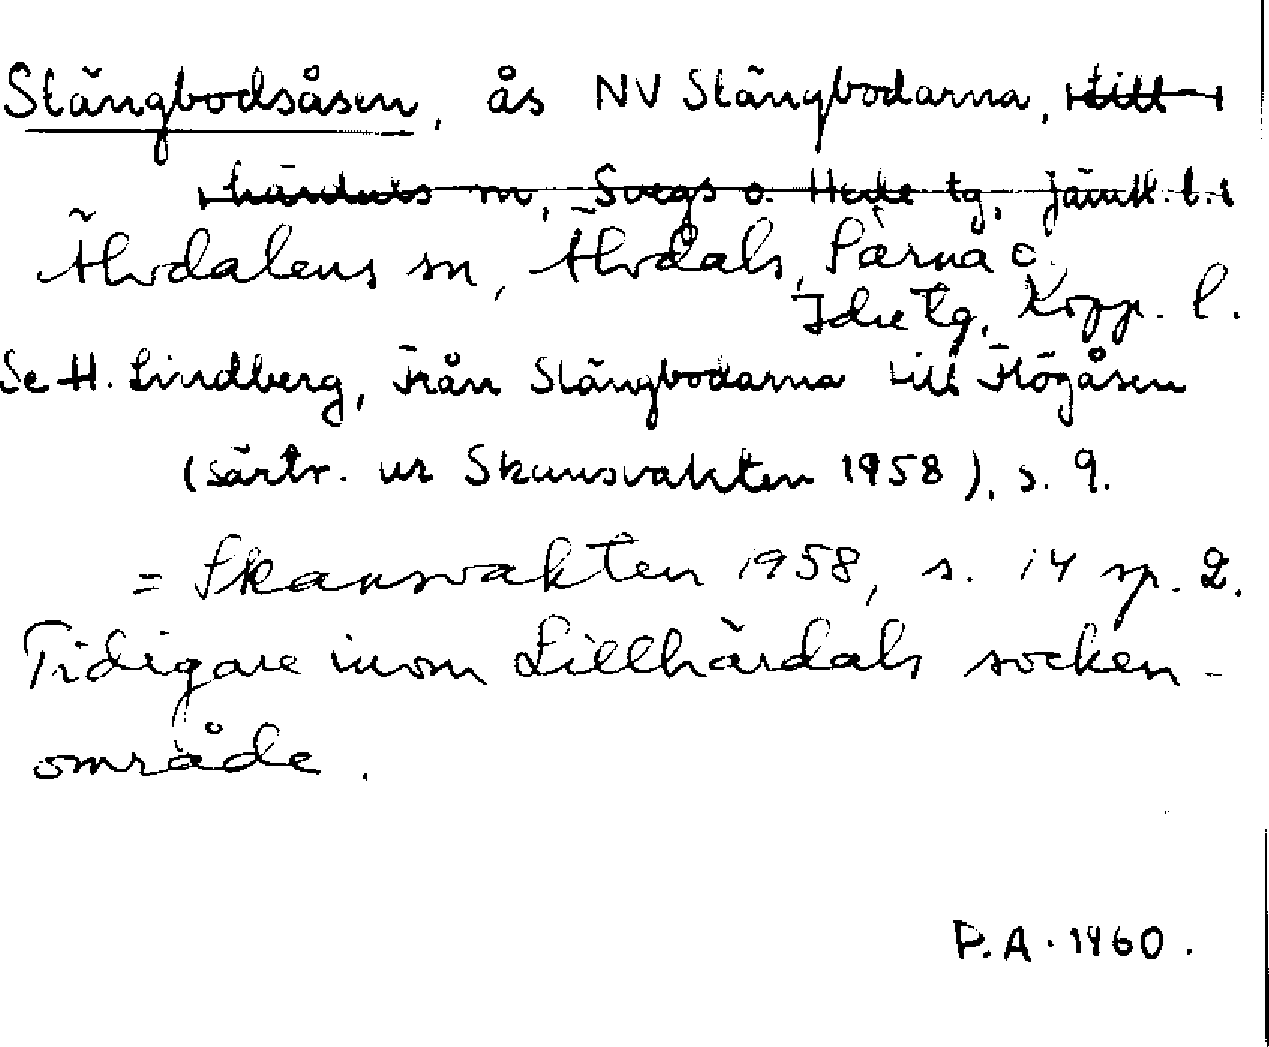 Stängbodsåsen, ås NV Stängbodarna, Lill-
härdals sn, Svegs o. Hede tg, Jämtl. l.
Älvdalens sn, Älvdals, Särna o.
Idre tg, Kopp. l.
Se H. Lindberg, Från Stängbodarna till Flögåsen
(särtr. ur Skansvakten 1958), s. 9.
= Skansvakten 1958, s. 14 sp. 2.
Tidigare inom Lillhärdals socken-
område.
P.A. 1960.